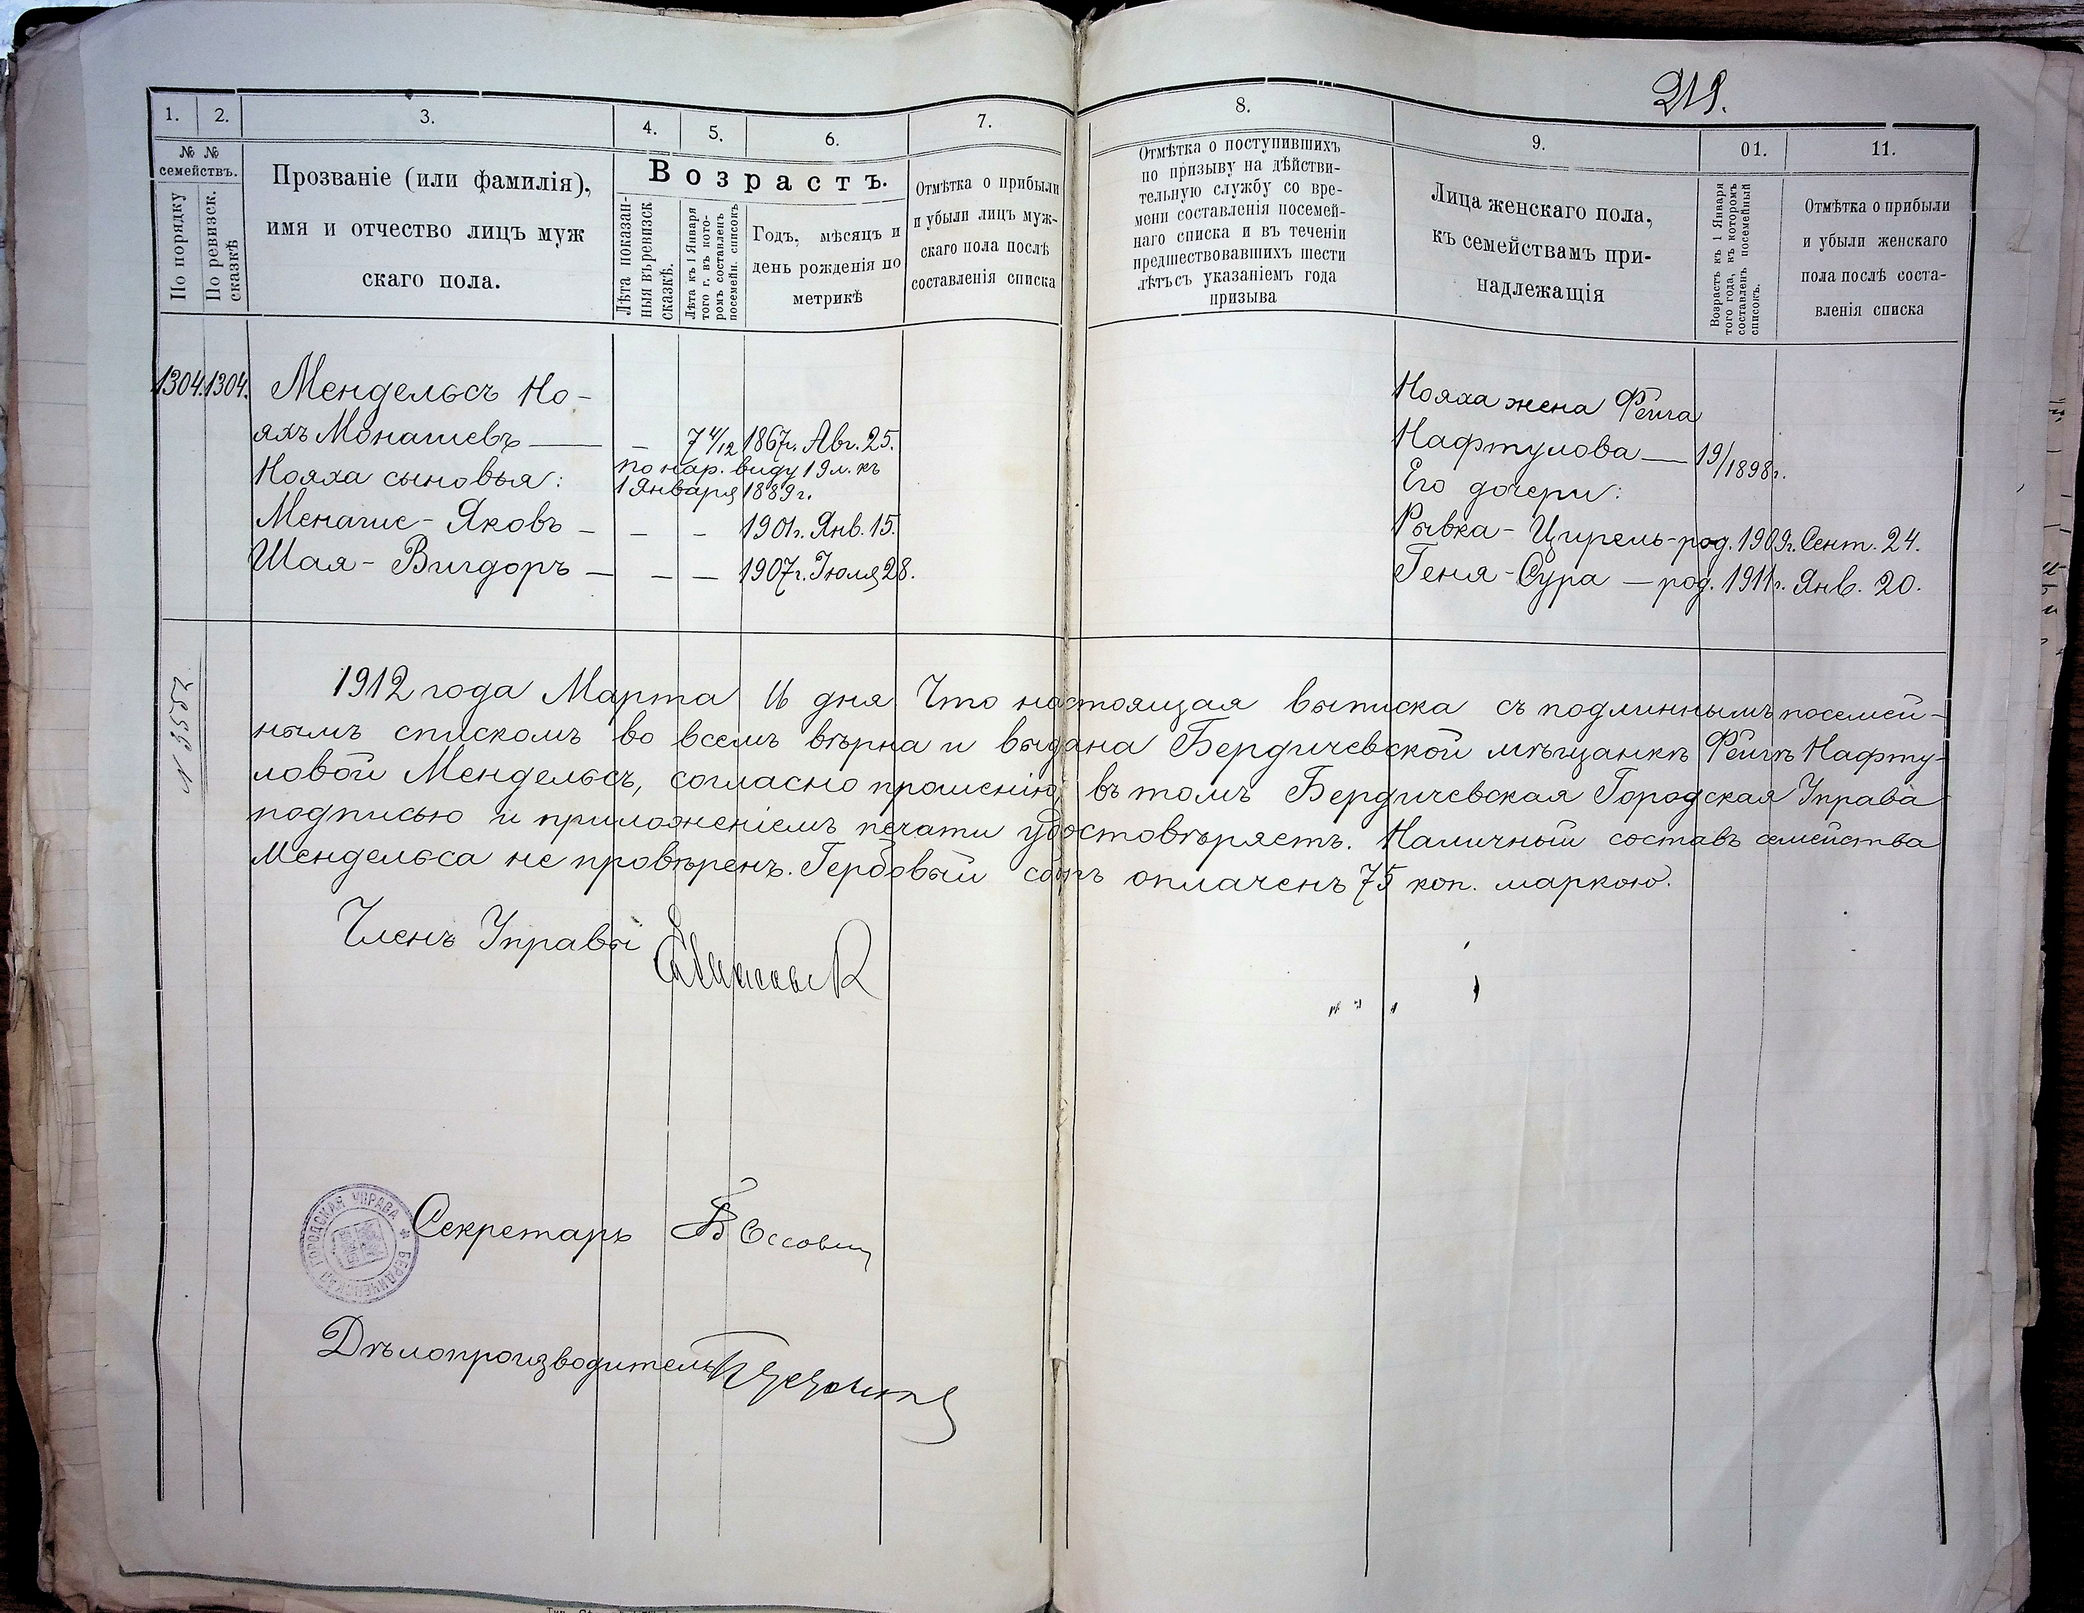 219.
1. 2. 3. 4. 5. 6. 7. 8. 9. 01. 11.
№ №
семействъ.
По порядку
По ревизск. сказкѣ
Прозваніе (или фамилія),
имя и отчество лицъ муж
скаго пола.
Возрастъ.
Лѣта показан-
ныя въ ревизск.
сказкѣ.
Лѣта къ 1 Января
того г. въ кото-
ромъ составленъ
посемейн. списокъ
Годъ, мѣсяцъ и
день рожденія по
метрикѣ
Отмѣтка о прибыли
и убыли лицъ муж-
скаго пола послѣ
составленія списка
Отмѣтка о поступившихъ
по призыву на дѣйстви-
тельную службу со вре-
мени составленія посемей-
наго списка и въ теченіи
предшествовавшихъ шести
лѣтъ съ указаніемъ года
призыва
Лица женскаго пола,
къ семействамъ при-
надлежащія
Возрастъ къ 1 Января
того года, въ которомъ
составленъ посемейный
списокъ.
Отмѣтка о прибыли
и убыли женскаго
пола послѣ соста-
вленія списка
1304. 1304. Мендельсъ Но-
яхъ Монашевъ — – 7 4/12 1867г. Авг. 25.
по нар. виду 19 л. къ
Нояха сыновья: 1 Января 1889 г.
Менашe - Яковъ – – – 1901г. Янв. 15.
Шая - Вигдоръ – – – 1907г. Іюля 28.
Нояха жена Фейга
Нафтулова — 19/1898г.
Его дочери:
Рывка - Цирель - род. 1909г. Сент. 24.
Геня - Сура — род. 1911г. Янв. 20.
N 3552
1912 года Марта 16 дня Что настоящая выписка съ подлиннымъ посемей-
нымъ спискомъ во всемъ вѣрна и выдана Бердичевской мѣщанкѣ Фейгѣ Нафту-
ловой Мендельсъ, согласно прошенію, въ томъ Бердичевская Городская Управа
подписью и приложеніемъ печати удостовѣряетъ. Наличный составъ семейства
Мендельса не провѣренъ. Гербовый сборъ оплаченъ 75 коп. маркою.
Членъ Управы
БЕРДИЧЕВСКАЯ ГОРОДСКАЯ УПРАВА
Секретарь
Дѣлопроизводитель